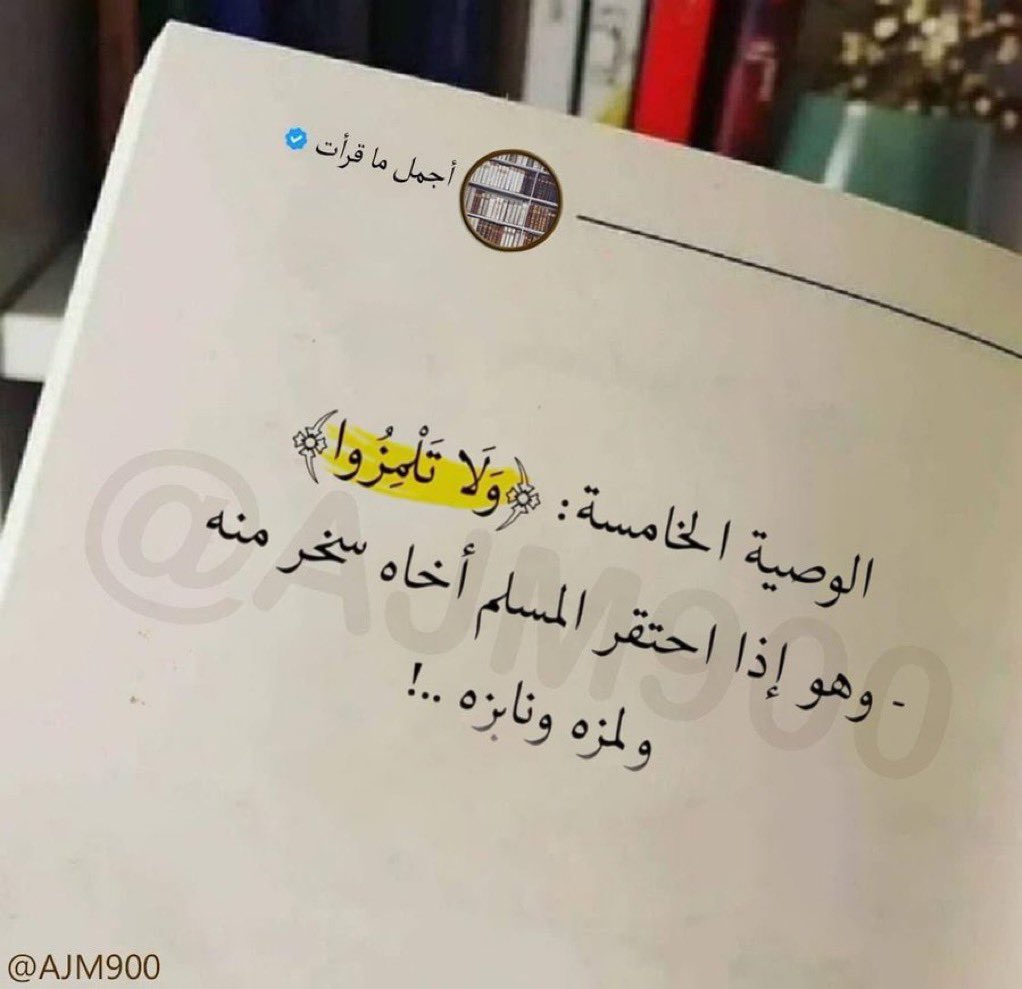 أجمل ما قرأت
الوصية الخامسة: ﴿وَلَا تَلْمِزُوا﴾
- وهو إذا احتقر المسلم أخاه سخر منه
ولمزه ونابزه ..!
@AJM900
@AJM900